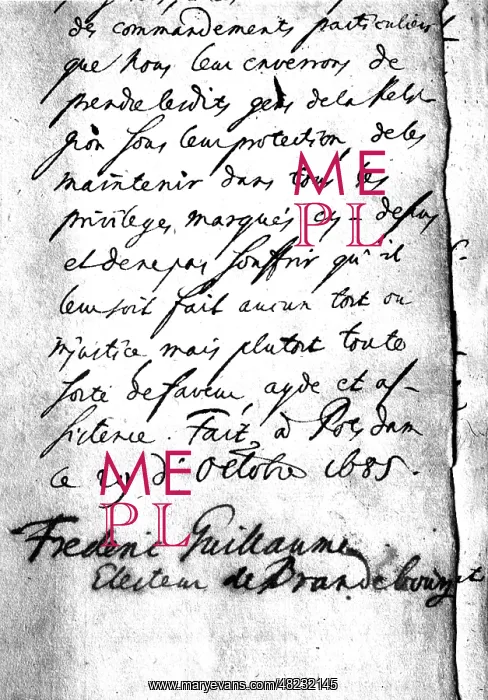 des commandements particuliers
que Nous leur envoirons de
prendre lesdits gens de la Reli-
gion sous leur protection, de les
maintenir dans tous les
privileges marqués cy - dessus
et de ne pas souffrir qu'il
leur soit fait aucun tort ou
injustice mais plutost toute
sorte de faveur, ayde et as-
sistence. Fait à Potsdam
ce d'Octobre 1685.
Frederic Guillaume
Electeur de Brandebourg
ME
PL
ME
PL
www.maryevans.com/48232145